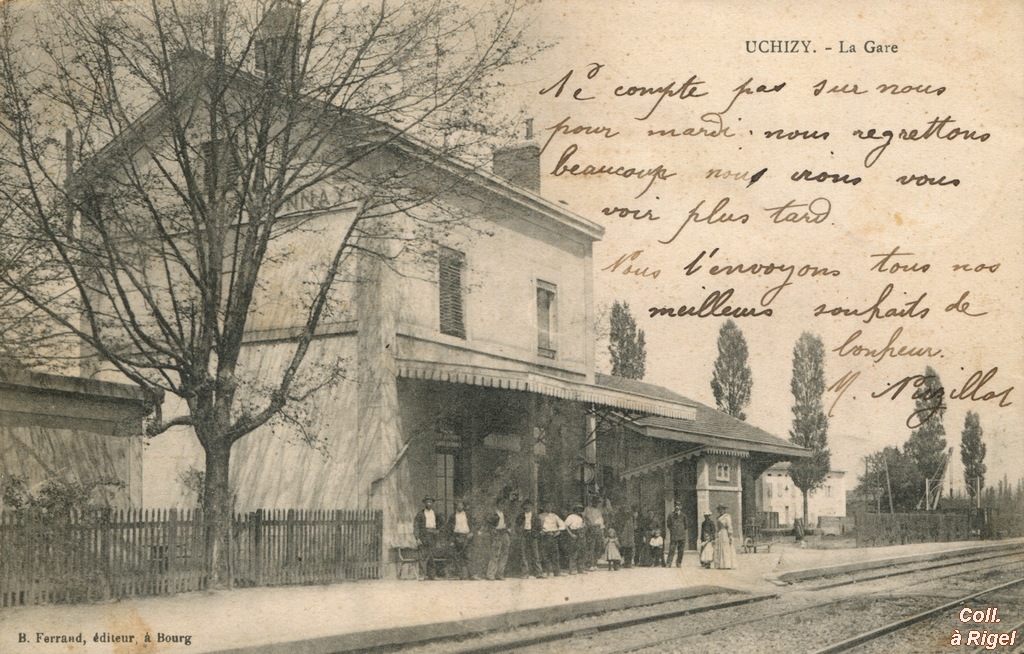 UCHIZY. - La Gare
Ne compte pas sur nous
pour mardi. nous regrettons
beaucoup nous irons vous
voir plus tard.
Nous t'envoyons tous nos
meilleurs souhaits de
bonheur.
NNAY
B. Ferrand, éditeur, à Bourg
Coll.
à Rigel